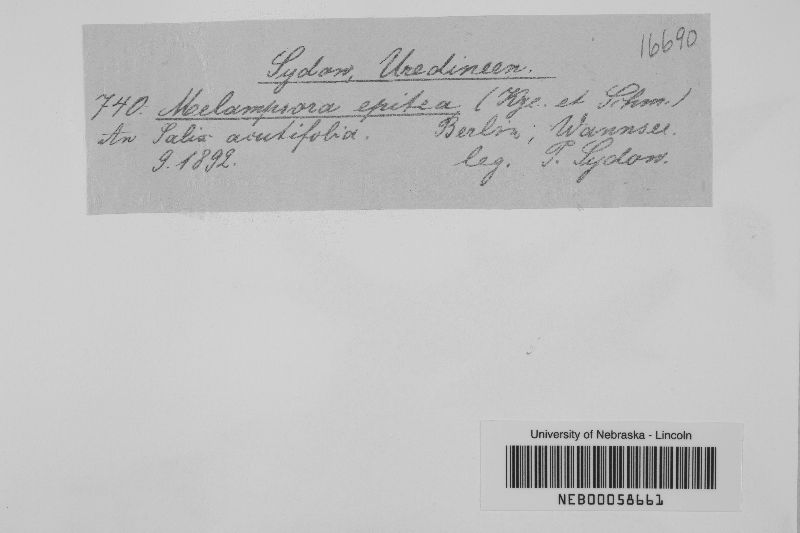 16690
Sydow, Uredineen.
740. Melampsora epitea (Kze. et Schm.)
An Salix acutifolia. Berlin; Wannsee.
9. 1892. leg. P. Sydow.
University of Nebraska - Lincoln
NEB00058661